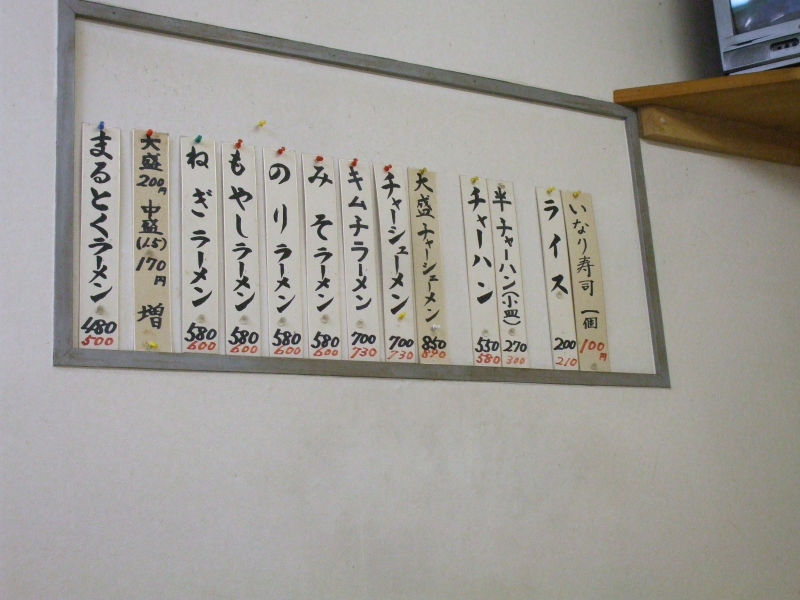 まるとくラーメン 480 500
大盛200円 中盛(1.5)170円 増
ねぎラーメン 580 600
もやしラーメン 580 600
のりラーメン 580 600
みそラーメン 580 600
キムチラーメン 700 730
チャーシューメン 700 730
大盛チャーシューメン 850 890
チャーハン 550 580
半チャーハン(小皿) 270 300
ライス 200 210
いなり寿司 一個 100円